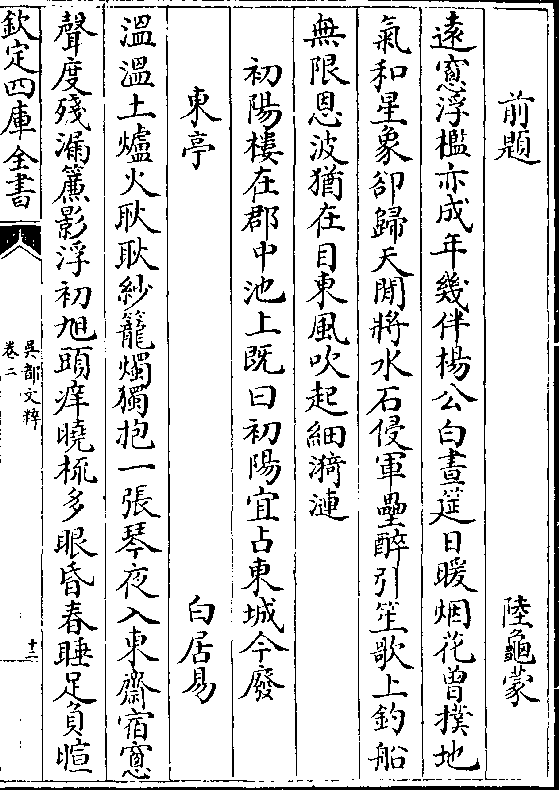 前題 陸龜蒙
遠窻浮檻亦成年幾伴楊公白晝筵日暖烟花曾撲地
氣和星象卻歸天閒將水石侵軍壘醉引笙歌上釣船
無限恩波猶在目東風吹起細漪漣
初陽樓在郡中池上既曰初陽宜占東城今廢
東亭 白居易
溫溫土爐火耿耿紗籠燭獨抱一張琴夜入東齋宿窻
聲度殘漏簾影浮初旭頭痒曉梳多眼昏春睡足負暄
欽定四庫全書
吳都文粹
卷二
十二